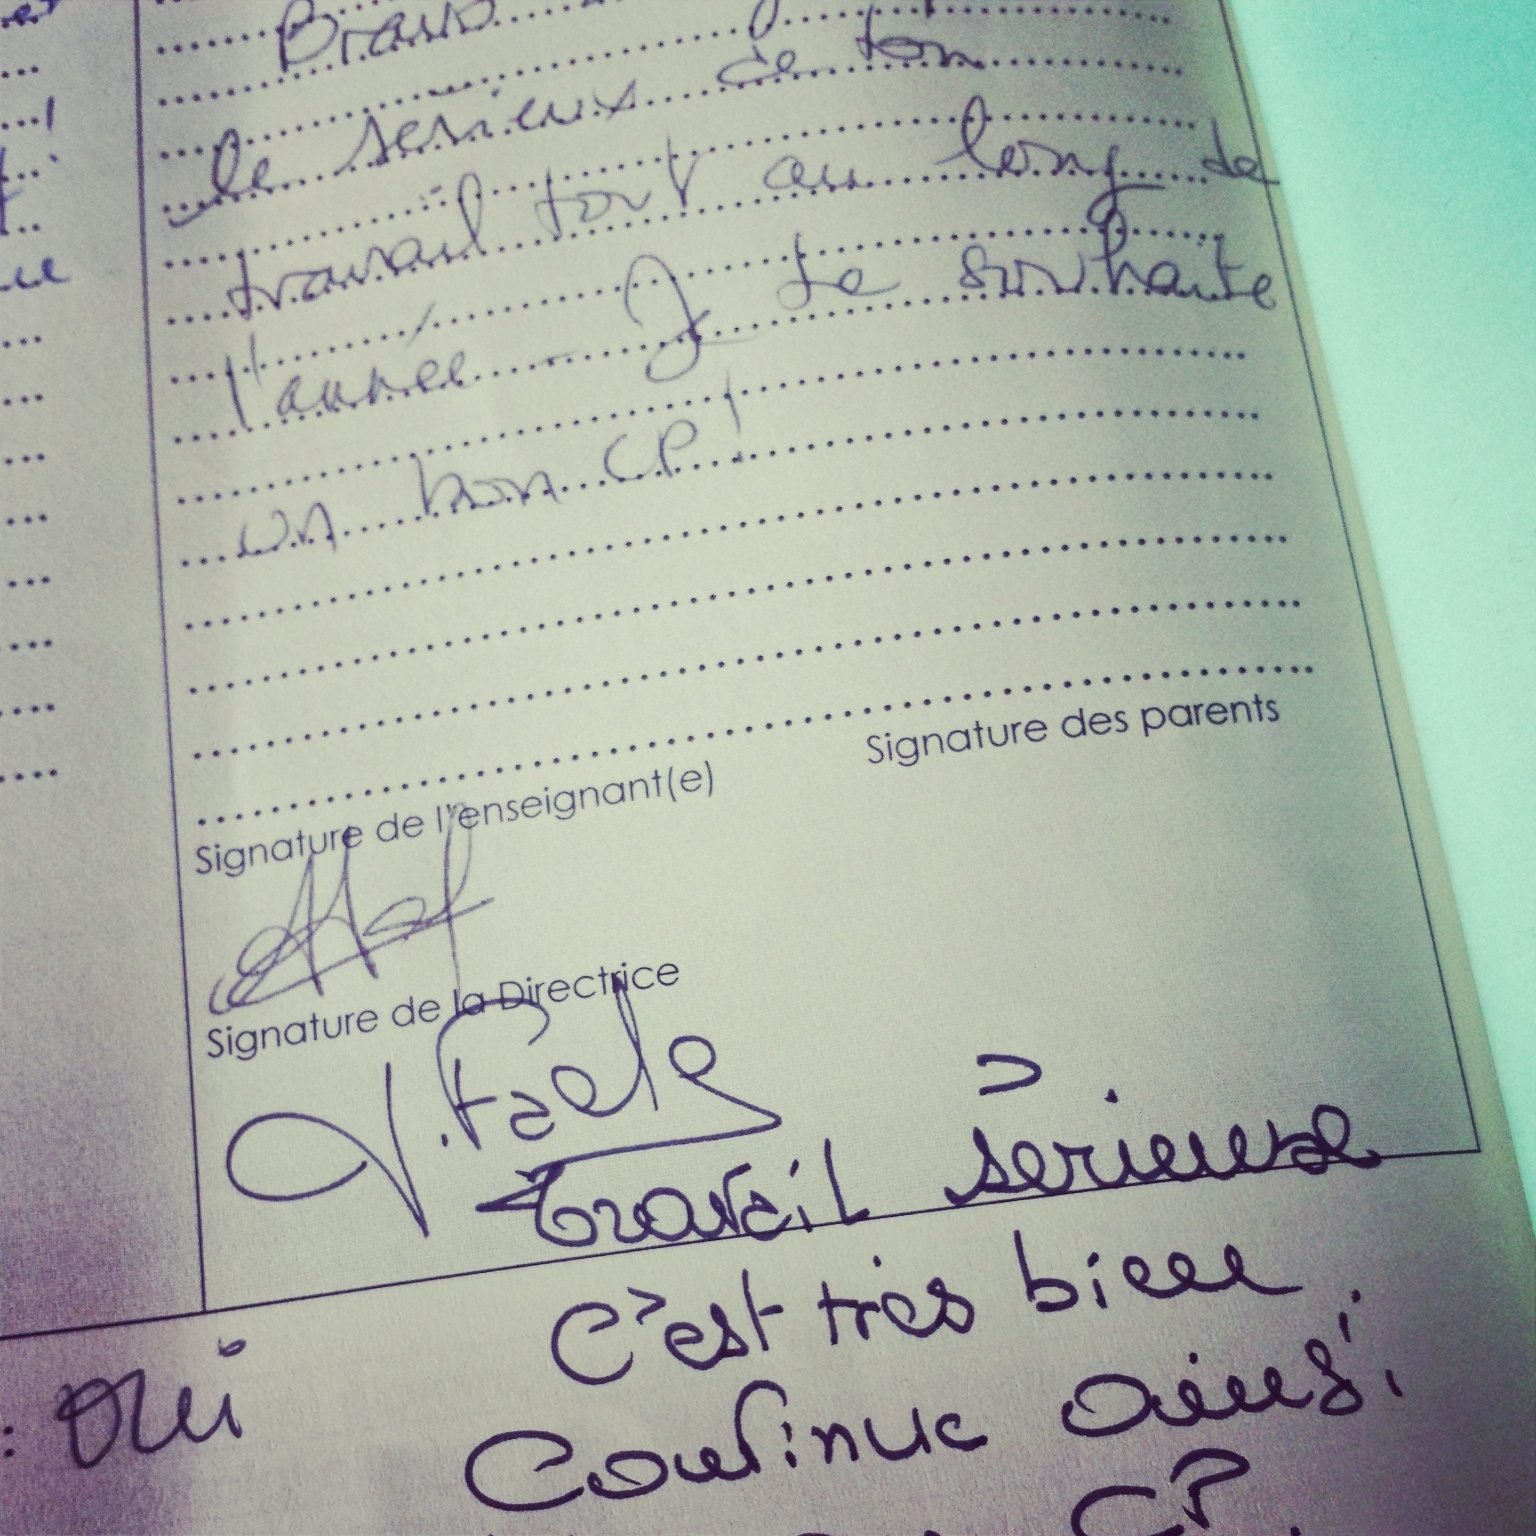 Bravo
le sérieux de ton
travail tout au long de
l'année. Je te souhaite
un bon CP !
Signature de l'enseignant(e)
Signature des parents
Signature de la Directrice
travail sérieuse
C'est très bien
Continue ainsi
: oui
CP